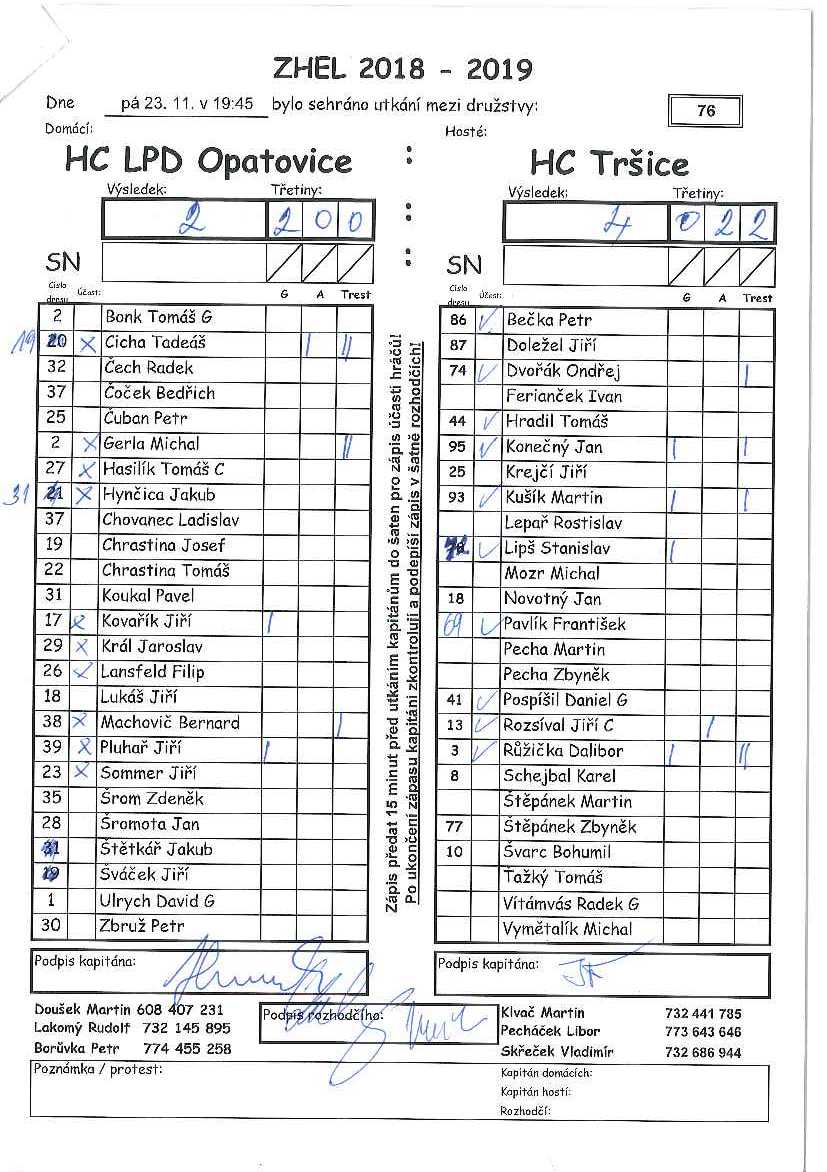 ZHEL 2018 - 2019
Dne pá 23. 11. v 19:45 bylo sehráno utkání mezi družstvy: 76
Domácí: Hosté:
HC LPD Opatovice : HC Tršice
Výsledek: Třetiny: Výsledek: Třetiny:
2 2 0 0 : 4 0 2 2
SN : SN
Číslo dresu Účast: G A Trest
2 Bonk Tomáš G
19 20 x Cicha Tadeáš | ||
32 Čech Radek
37 Čoček Bedřich
25 Čuban Petr
2 x Gerla Michal ||
27 x Hasilík Tomáš C
31 21 x Hynčica Jakub
37 Chovanec Ladislav
19 Chrastina Josef
22 Chrastina Tomáš
31 Koukal Pavel
17 x Kovařík Jiří |
29 x Král Jaroslav
26 x Lansfeld Filip
18 Lukáš Jiří
38 x Machovič Bernard |
39 x Pluhař Jiří |
23 x Sommer Jiří
35 Šrom Zdeněk
28 Šromota Jan
31 Štětkář Jakub
19 Šváček Jiří
1 Ulrych David G
30 Zbruž Petr
Zápis předat 15 minut před utkáním kapitánům do šaten pro zápis účasti hráčů!
Po ukončení zápasu kapitáni zkontrolují a podepíší zápis v šatně rozhodčích!
Číslo dresu Účast: G A Trest
86 ✓ Bečka Petr
87 Doležel Jiří
74 ✓ Dvořák Ondřej |
Feriancek Ivan
44 ✓ Hradil Tomáš
95 ✓ Konečný Jan | |
25 Krejčí Jiří
93 ✓ Kušík Martin | |
Lepař Rostislav
✓ Lipš Stanislav |
Mozr Michal
18 Novotný Jan
69 ✓ Pavlík František
Pecha Martin
Pecha Zbyněk
41 ✓ Pospíšil Daniel G
13 ✓ Rozsíval Jiří C |
3 ✓ Růžička Dalibor | ||
8 Schejbal Karel
Štěpánek Martin
77 Štěpánek Zbyněk
10 Švarc Bohumil
Ťažký Tomáš
Vítámvás Radek G
Vymětalík Michal
Podpis kapitána: Podpis kapitána:
Doušek Martin 608 407 231
Lakomý Rudolf 732 145 895
Borůvka Petr 774 455 258
Podpis rozhodčího:
Klvač Martin 732 441 785
Pecháček Libor 773 643 646
Skřeček Vladimír 732 686 944
Poznámka / protest:
Kapitán domácích:
Kapitán hostí:
Rozhodčí: